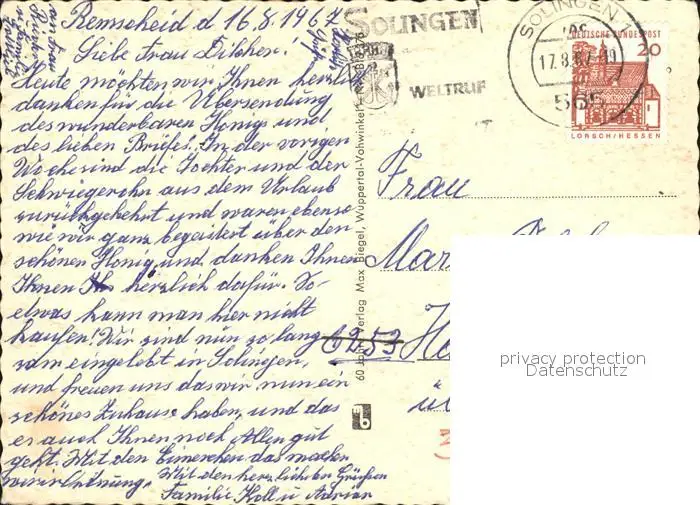 Remscheid d 16.8.1967
Liebe Frau Dilcher!
Heute möchten wir Ihnen herzlich
danken für die Übersendung
des wunderbaren Honigs und
des lieben Briefes. In der vorigen
Woche sind die Tochter und der
Schwiegersohn aus dem Urlaub
zurückgekehrt und waren ebenso
wie wir ganz begeistert über den
schönen Honig und danken Ihnen
Ihnen herzlich dafür. So-
etwas kann man hier nicht
kaufen! Wir sind nun so lang
sam eingelebt in Solingen,
und freuen uns das wir nun ein
schönes Zuhause haben, und das
es auch Ihnen noch Allen gut
geht. Mit den Eimerchen das machen
wir in Ordnung. Mit den herzlichsten Grüßen
Familie Koll u Adrian
60 Jahre Verlag Max Biegel, Wuppertal-Vohwinkel
SOLINGEN
WELTRUF
SOLINGEN 1
17.8.67
565
DEUTSCHE BUNDESPOST
20
LORSCH/HESSEN
Frau
Mar
6253 He
ü
privacy protection
Datenschutz